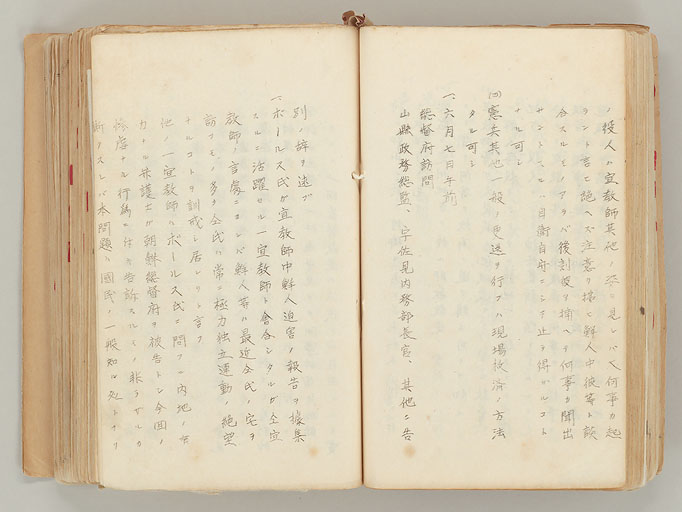 ノ役人ハ宣教師其他ノ姿ヲ見レバ又何事カ起
ラント言ヒ絶ヘズ注意ヲ壊ヒ鮮人中彼等ト談
合スルモノアラバ後刻之ヲ捕ヘテ何事カ聞出
サントスルハ自衛自存ニシテ止ヲ得ザルコト
ナル可シ
(四)憲兵其他一般ノ更迭ヲ行フハ現場救済ノ方法
タル可シ
一、六月七日午前
総督府訪問
山縣政務総監、宇佐見内務部長官、其他ニ告
別ノ辞ヲ述ブ
一、ボールス氏ガ宣教師中鮮人迫害ノ報告ヲ採集
スルニ活躍セル一宣教師ト會合シタルガ仝宣
教師ノ言處ニヨレバ鮮人等ハ最近仝氏ノ宅ヲ
訪フモノ多ク仝氏ハ常ニ極力独立運動ノ絶望
ナルコトヲ訓戒シ居レリト言フ
他ノ一宣教師ハボールス氏ニ問フニ内地ノ有
力ナル弁護士ガ朝鮮総督府ヲ被告トシ今回ノ
惨虐ナル行為ニ付キ告訴スルモノ非ラザルカ
斯クスレバ本問題ハ國民ノ一般知ル処トナリ